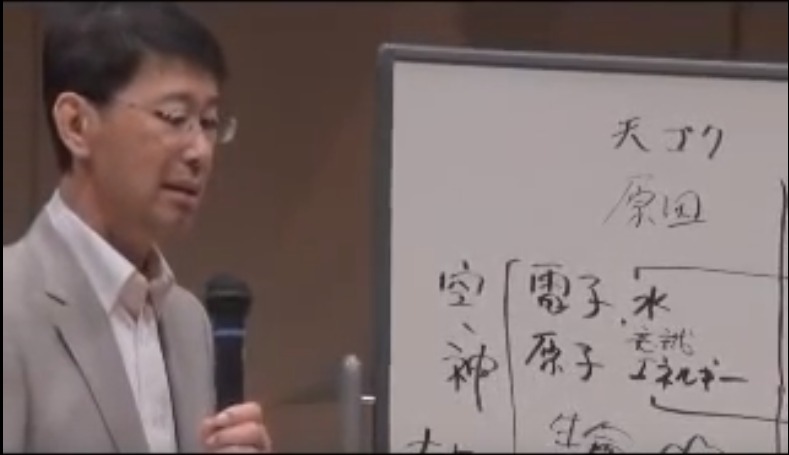 天ゴク
原因
空、 電子、水
神 原子 エネルギー
生命